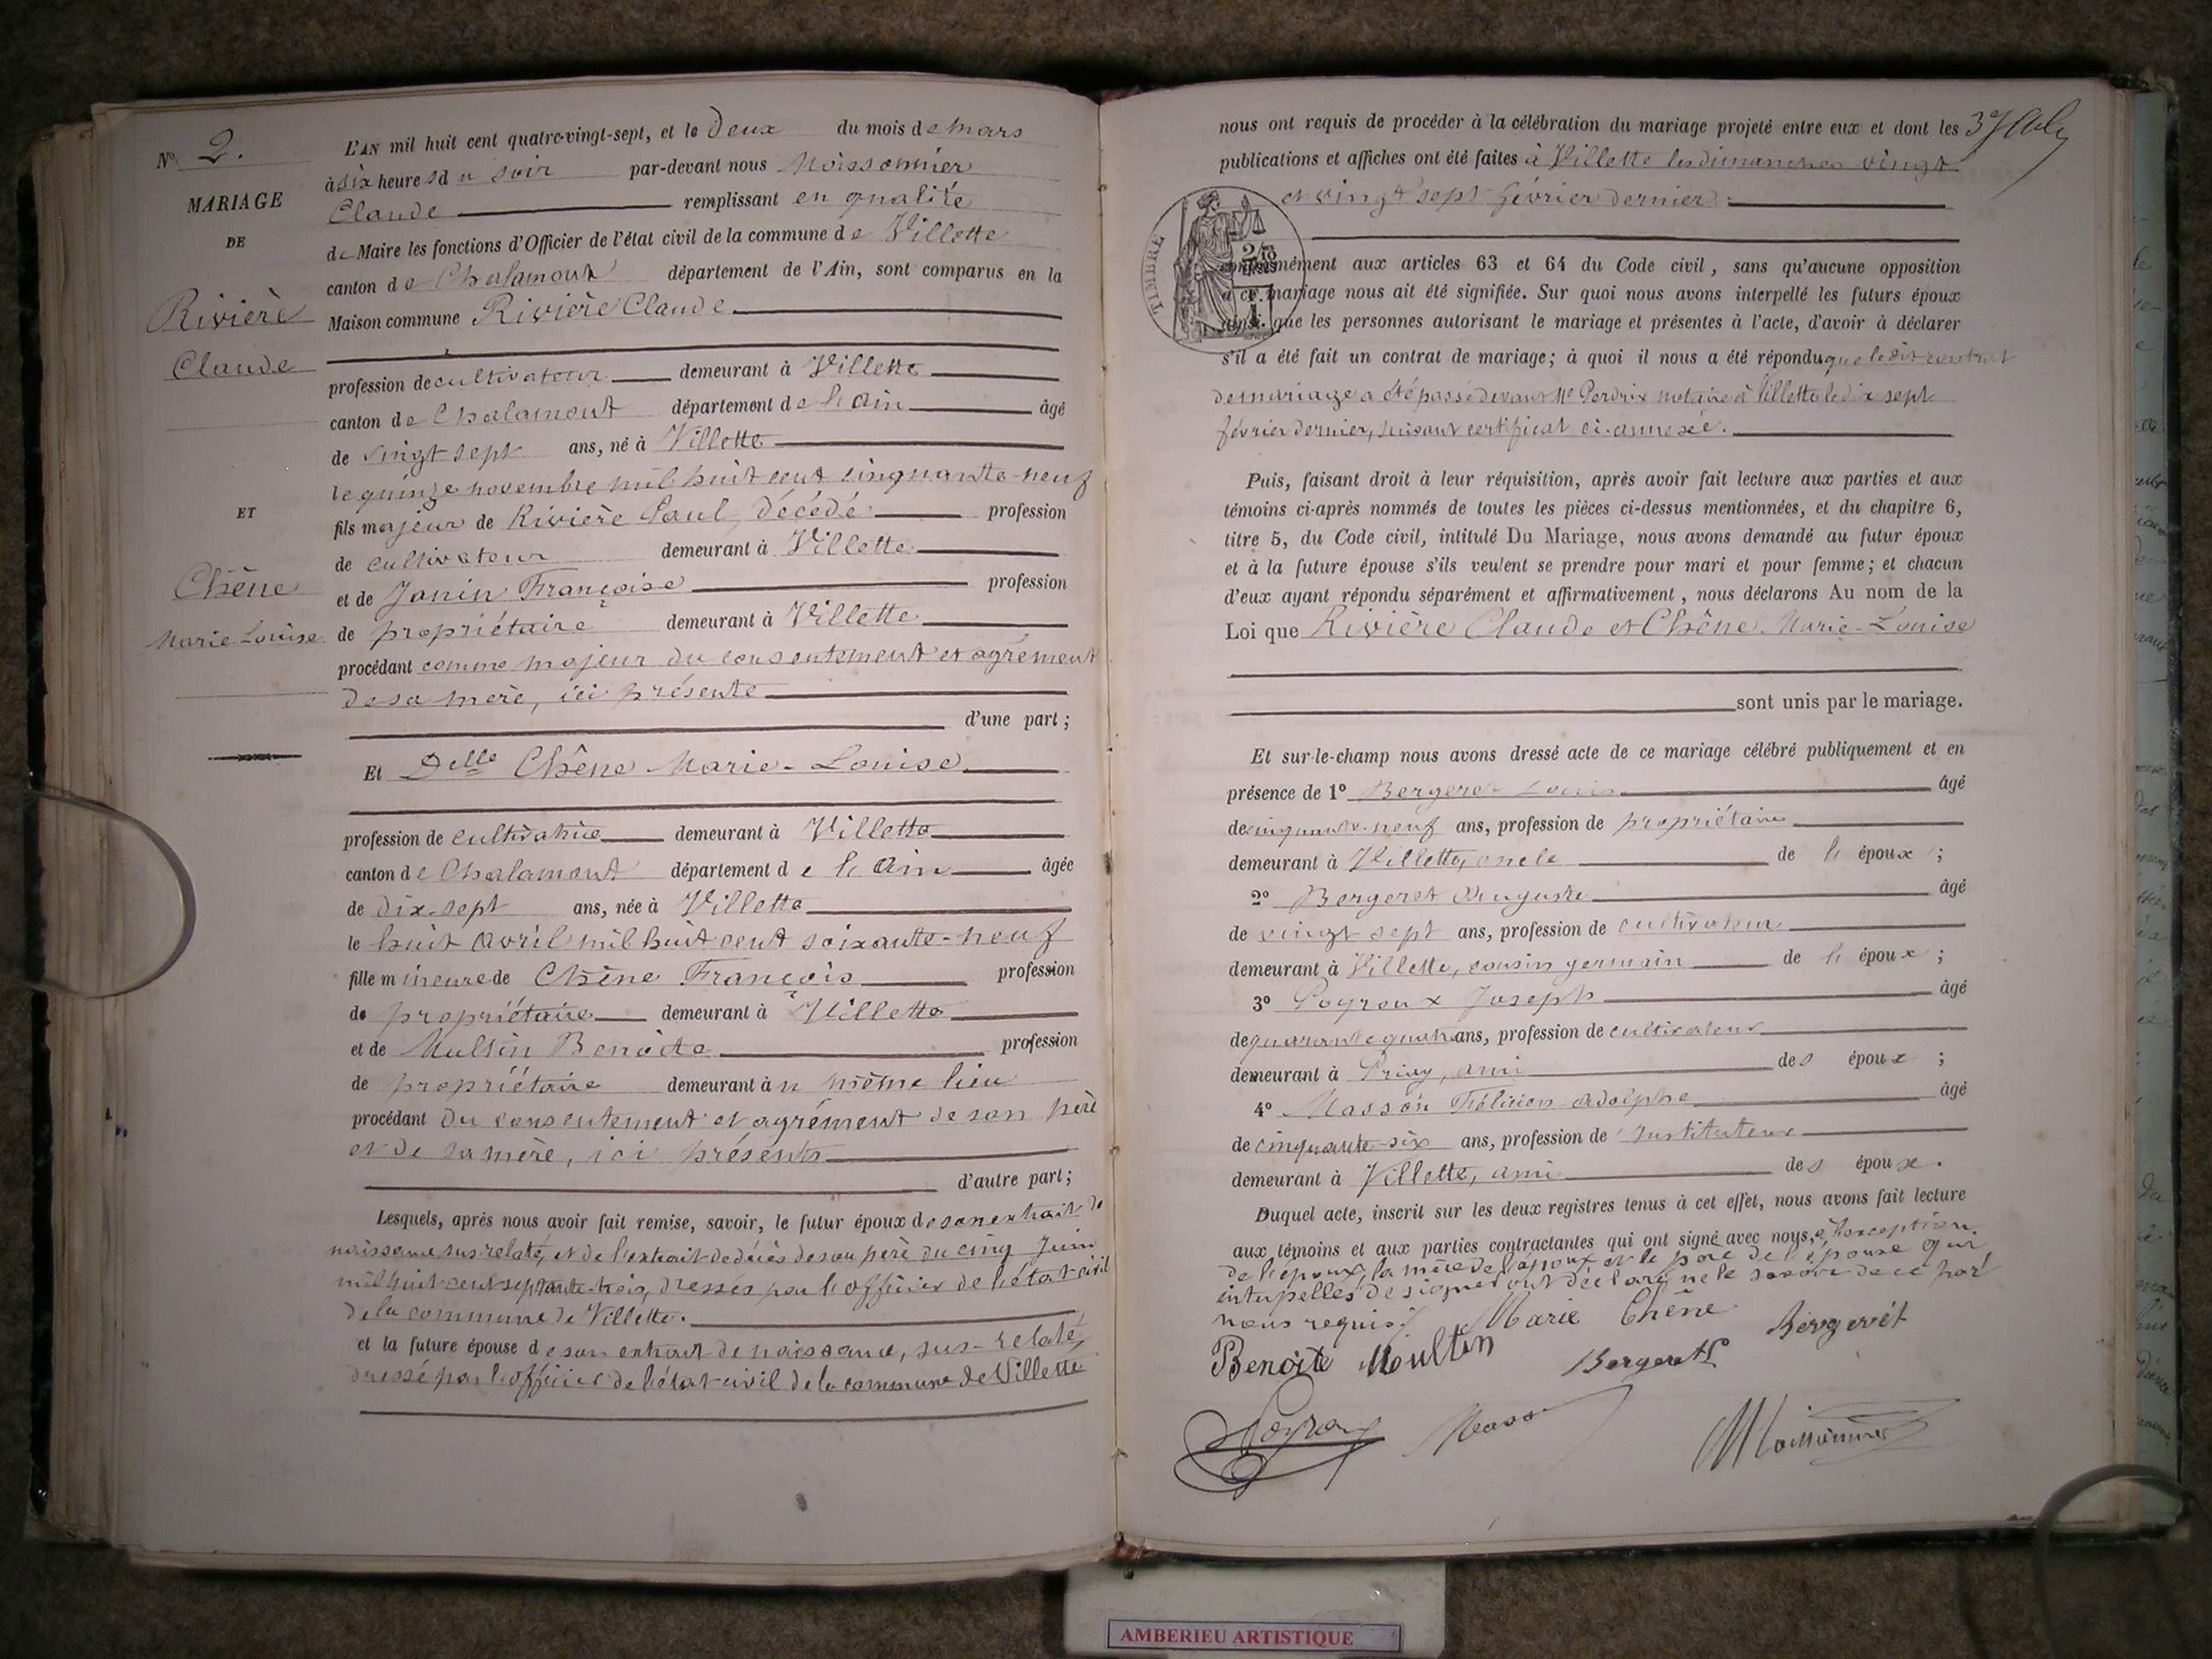 N° 2.
MARIAGE
DE
Rivière
Claude
ET
Chêne
Marie-Louise
L'AN mil huit cent quatre-vingt-sept, et le Deux du mois de mars
à six heures du soir par-devant nous Moissonnier
Claude remplissant en qualité
de Maire les fonctions d'Officier de l'état civil de la commune de Villette
canton de Chalamont département de l'Ain, sont comparus en la
Maison commune Rivière Claude
profession de cultivateur demeurant à Villette
canton de Chalamont département de l'Ain âgé
de vingt sept ans, né à Villette
le quinze novembre mil huit cent cinquante-neuf
fils majeur de Rivière Paul, décédé profession
de cultivateur demeurant à Villette
et de Janin Françoise profession
de propriétaire demeurant à Villette
procédant comme majeur du consentement et agrément
de sa mère, ici présente
d'une part;
Et Delle Chêne Marie-Louise
profession de cultivatrice demeurant à Villette
canton de Chalamont département de l'Ain âgée
de dix-sept ans, née à Villette
le huit avril mil huit cent soixante-neuf
fille mineure de Chêne François profession
de propriétaire demeurant à Villette
et de Multin Benoîte profession
de propriétaire demeurant au même lieu
procédant du consentement et agrément de son père
et de sa mère, ici présents
d'autre part;
Lesquels, après nous avoir fait remise, savoir, le futur époux de son extrait de
naissance sus relaté, et de l'extrait de décès de son père du cinq Juin
mil huit cent septante-trois, dressés par l'officier de l'état civil
de la commune de Villette.
et la future épouse de son extrait de naissance, sus-relaté,
dressé par l'officier de l'état civil de la commune de Villette
nous ont requis de procéder à la célébration du mariage projeté entre eux et dont les
publications et affiches ont été faites à Villette les dimanches vingt
et vingt sept février dernier.
TIMBRE
conformément aux articles 63 et 64 du Code civil, sans qu'aucune opposition
à ce mariage nous ait été signifiée. Sur quoi nous avons interpellé les futurs époux
ainsi que les personnes autorisant le mariage et présentes à l'acte, d'avoir à déclarer
s'il a été fait un contrat de mariage; à quoi il nous a été répondu que ledit contrat
de mariage a été passé devant Me Perdrix notaire à Villette le dix sept
février dernier, suivant certificat ci-annexé.
Puis, faisant droit à leur réquisition, après avoir fait lecture aux parties et aux
témoins ci-après nommés de toutes les pièces ci-dessus mentionnées, et du chapitre 6,
titre 5, du Code civil, intitulé Du Mariage, nous avons demandé au futur époux
et à la future épouse s'ils veulent se prendre pour mari et pour femme; et chacun
d'eux ayant répondu séparément et affirmativement, nous déclarons Au nom de la
Loi que Rivière Claude et Chêne Marie-Louise
sont unis par le mariage.
Et sur-le-champ nous avons dressé acte de ce mariage célébré publiquement et en
présence de 1° Bergeret Louis âgé
de cinquante-neuf ans, profession de propriétaire
demeurant à Villette, oncle de l'époux;
2° Bergeret Auguste âgé
de vingt sept ans, profession de cultivateur
demeurant à Villette, cousin germain de l'époux;
3° Poyroux Joseph âgé
de quarante quatre ans, profession de cultivateur
demeurant à Priay, ami des époux;
4° Masson Félicien Adolphe âgé
de cinquante-six ans, profession de Instituteur
demeurant à Villette, ami des époux.
Duquel acte, inscrit sur les deux registres tenus à cet effet, nous avons fait lecture
aux témoins et aux parties contractantes qui ont signé avec nous, à l'exception
de l'époux, la mère de l'époux et le père de l'épouse qui
interpellés de signer ont déclaré ne le savoir de ce par
nous requis.
Marie Chêne
Bergeret
Benoite Moultin
Bergeret L
Masson
Moissonnier
AMBERIEU ARTISTIQUE